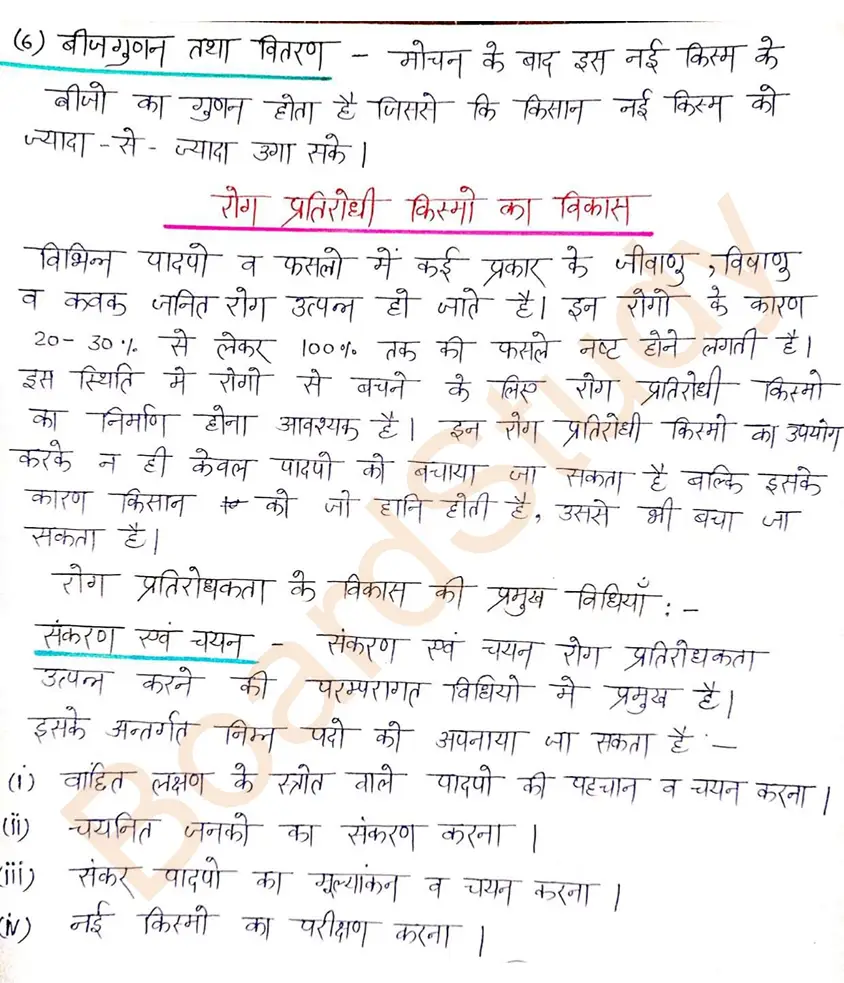 (6) बीजगुणन तथा वितरण - मोचन के बाद इस नई किस्म के
बीजो का गुणन होता है जिससे कि किसान नई किस्म को
ज्यादा-से-ज्यादा उगा सके।
रोग प्रतिरोधी किस्मो का विकास
विभिन्न पादपो व फसलो में कई प्रकार के जीवाणु, विषाणु
व कवक जनित रोग उत्पन्न हो जाते है। इन रोगो के कारण
20-30% से लेकर 100% तक की फसले नष्ट होने लगती है।
इस स्थिति मे रोगो से बचने के लिए रोग प्रतिरोधी किस्मो
का निर्माण होना आवश्यक है। इन रोग प्रतिरोधी किस्मो का उपयोग
करके न ही केवल पादपो को बचाया जा सकता है बल्कि इसके
कारण किसान को जो हानि होती है, उससे भी बचा जा
सकता है।
रोग प्रतिरोधकता के विकास की प्रमुख विधियाँ :-
संकरण एवं चयन - संकरण एवं चयन रोग प्रतिरोधकता
उत्पन्न करने की परम्परागत विधियो मे प्रमुख है।
इसके अन्तर्गत निम्न पदो को अपनाया जा सकता है :-
(i) वांछित लक्षण के स्त्रोत वाले पादपो की पहचान व चयन करना।
(ii) चयनित जनको का संकरण करना।
(iii) संकर पादपो का मूल्यांकन व चयन करना।
(iv) नई किस्मो का परीक्षण करना।
BoardStudy